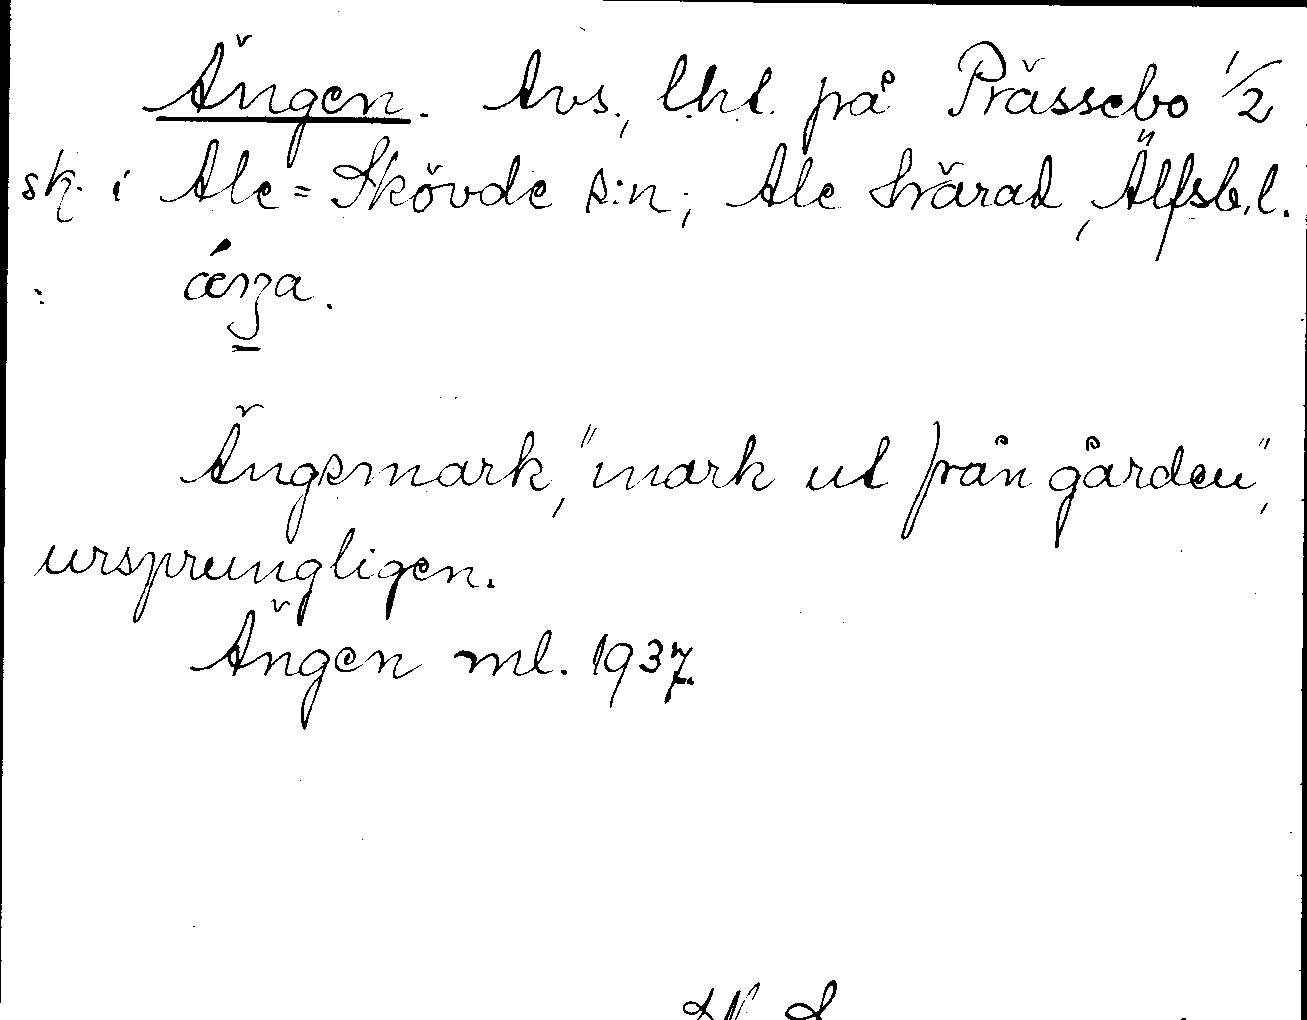 Ängen. Avs., lht. på Prässebo 1/2
sk. i Ale=Skövde s:n, Ale härad, Älfsb.l.
ǽŋa.
Ängsmark, "mark ut från gården",
ursprungligen.
Ängen ml. 1937.